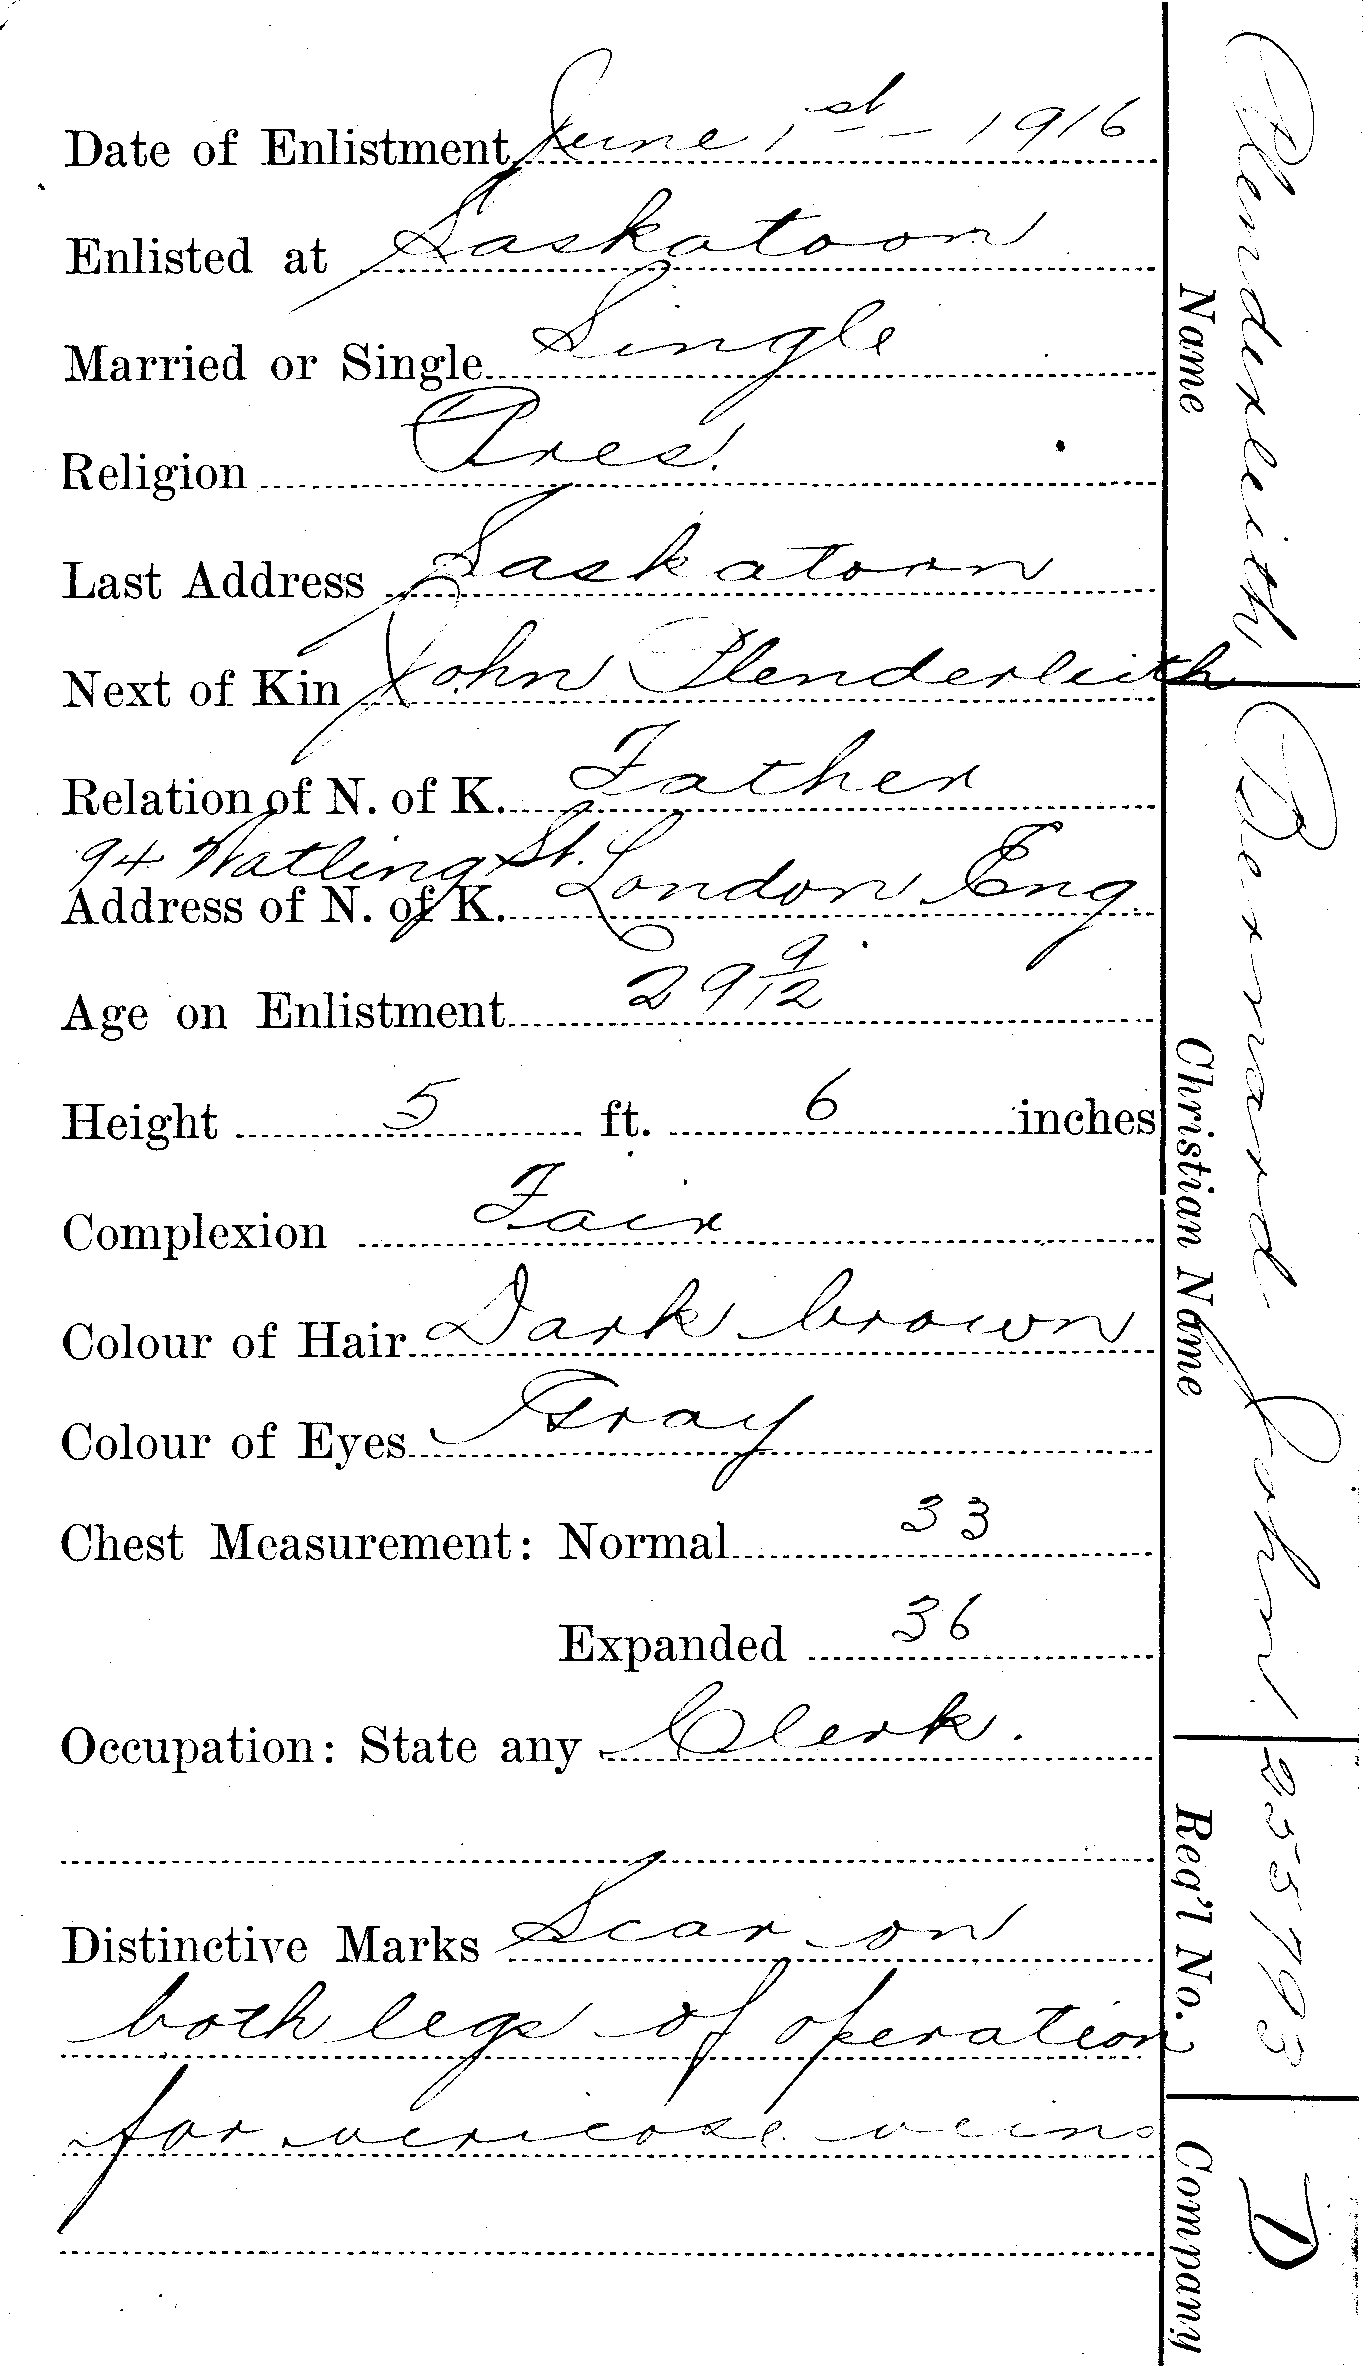 Date of Enlistment June 1st - 1916
Enlisted at Saskatoon
Married or Single Single
Religion Pres.
Last Address Saskatoon
Next of Kin John Plenderleith
Relation of N. of K. Father
94 Watling St.
Address of N. of K. London Eng.
Age on Enlistment 29 9/12
Height 5 ft. 6 inches
Complexion Fair
Colour of Hair Dark brown
Colour of Eyes Gray
Chest Measurement: Normal 33
Expanded 36
Occupation: State any Clerk.
Distinctive Marks Scar on
both legs of operation
for vericose veins
Plenderleith,
Name
Bernard John
Christian Name
255793
Reg'l No.
D
Company